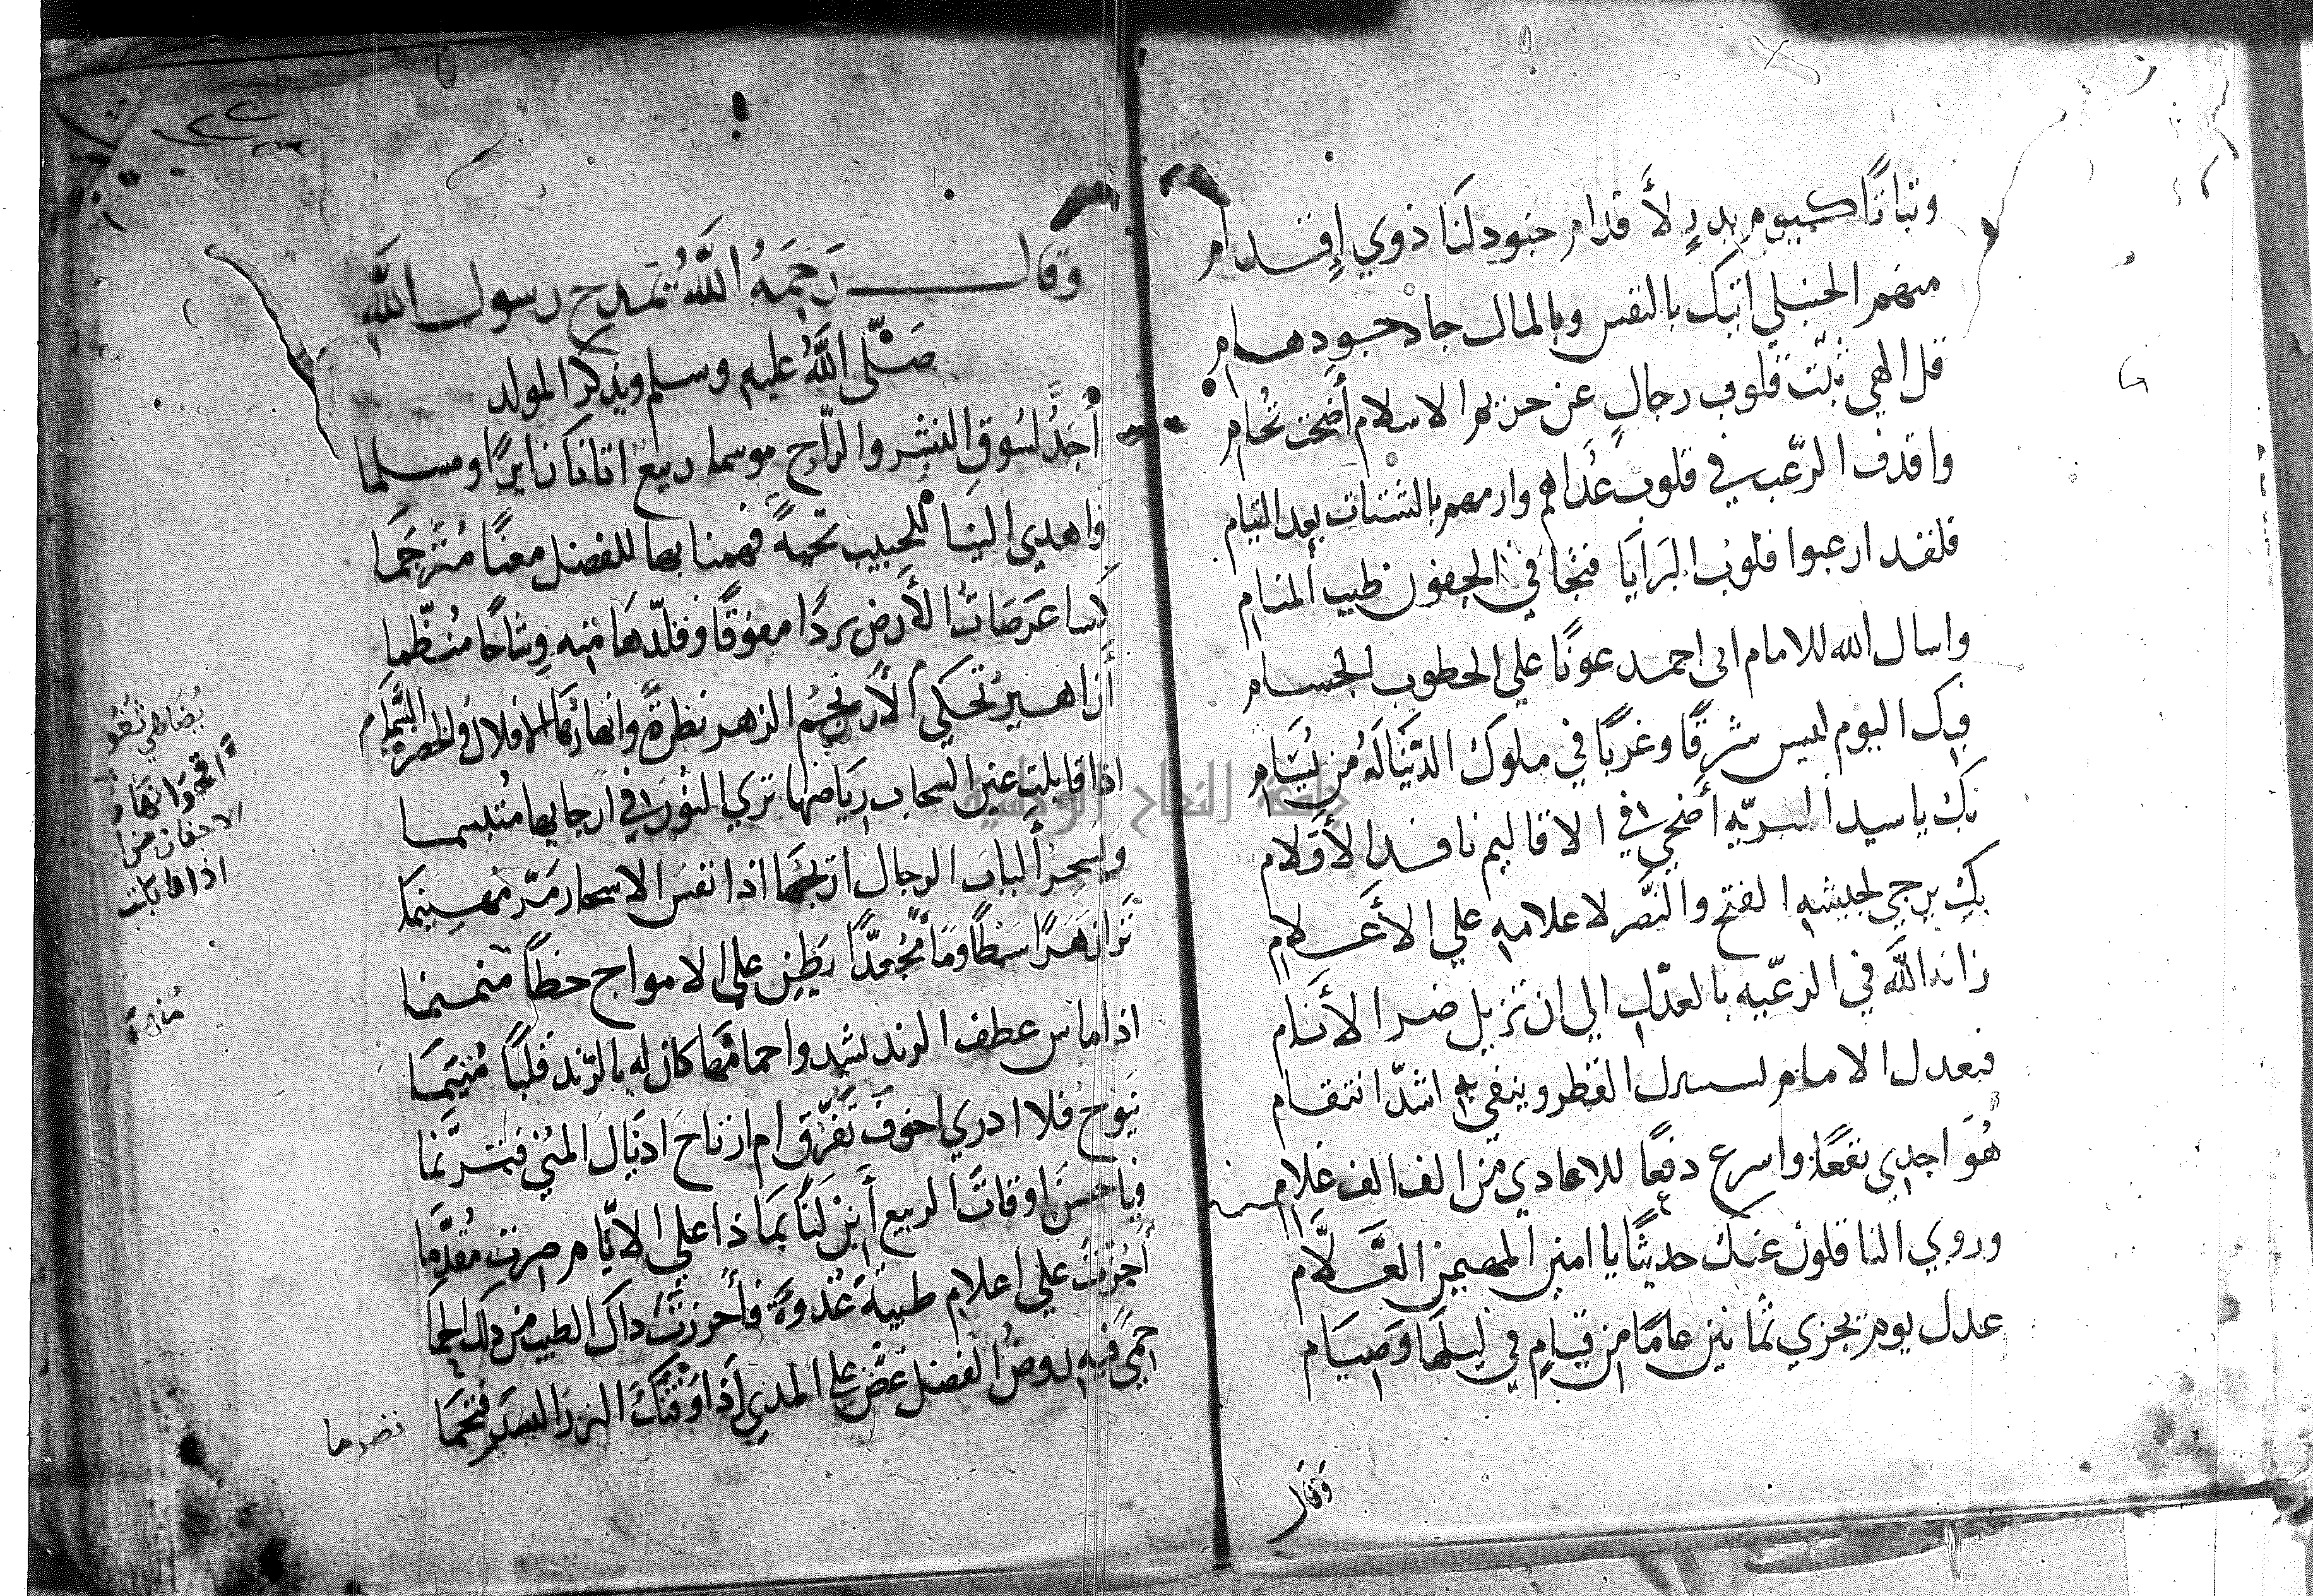 وثباتًا كيوم بدرٍ لأقدام جنود لنا ذوي إقدام
منهم الحنبلي اتيك بالنفس وبالمال جاد جود هام
قل الهي ثبّت قلوب رجالٍ عن حريم الاسلام أضحت تُحام
واقذف الرّعب في قلوب عُداهم وارمهم بالشتات بعد التيام
فلقد ارعبوا قلوب البرَايَا فتجافي الجفون طيب المنام
واسال الله للامام ابي احمد عونًا علي الخطوب الجسام
فبك اليوم ليس شرقًا وغربًا في ملوك الدّنيَا لَهُ من يُسَام
بك يا سيد البريّه أضحي في الاقاليم نافذ الأقلام
بك يرجي لجيشه الفتح والنّصر لاعلامه علي الأعلام
زانه الله في الرعيّه بالعدل الي ان تزيل ضر الأنام
فبعدل الامام القطر وينفي به اشدّ انتقام
هُوَ اجدي نفعًا واسرع دفعًا للاعادي من الف الف غلام
وروي الناقلون عنك حديثًا يا امين المهيمن العَلَّام
عدل يوم يجزي ثمانين عامًا من قيامٍ في ليلها وَصِيَام
وقال
وقال رَحِمَهُ اللَّهُ يمدح رسول اللَّه
صَلّى اللَّهُ عليه وسلم ويذكر المولد
أجَدُّ لسُوقِ البشر والرّاح موسما ربيع اتانا زايرًا ومسلما
فاهدي الينا للحبيب تحيةً فهمنا بها للفضل معنًا مُتَرجَما
كَسا عَرَصَات الأرض بردًا مفوقًا وقلّدهَا منه وِشاحًا مُنظّما
أزاهيرُ تحكي الأنجُم الزهر نظرةً وانهارُها الافلاك في الخضرة
اذا قابلت عين السحاب ريَاضها تري النّور في ارجايها متبسما
وتسحر ألباب الرجال اذا تنفس الاسحار مَرّ مهينما
تري نهرًا سَبْطًا وَمَا مُجعّدًا يَظِن علي الامواج خطاً منمنما
اذا ماس عطف الرند يشدوا حمامها كان له بالرّند قلبًا مُتيّمَا
يَنوح فلا ادري اخوفَ تَفرّق ام ارتاحَ اذ نال المُني فترنَّما
فيا حسن اوقات الربيع أبن لنا بمَا ذا علي الايّام صرت مقدّما
أجُزت علي اعلام طيبةَ غُدوةً فأحرزتَ ذاك الطيب من ذلك الحما
حمي فيه روضُ الفضل غضّ علي المدي اذا
اقحوانها
الاجفان من
اذا ما بكت